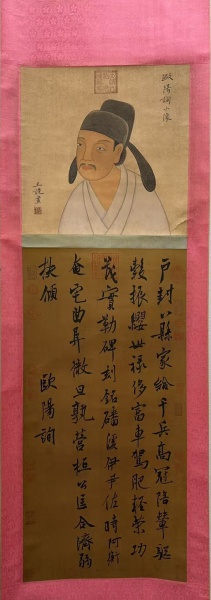 歐陽詢小像
戶封八縣家給千兵高冠陪輦驅
轂振纓世祿侈富車駕肥輕策功
茂實勒碑刻銘磻溪伊尹佐時阿衡
奄宅曲阜微旦孰營桓公匡合濟弱
扶傾
歐陽詢